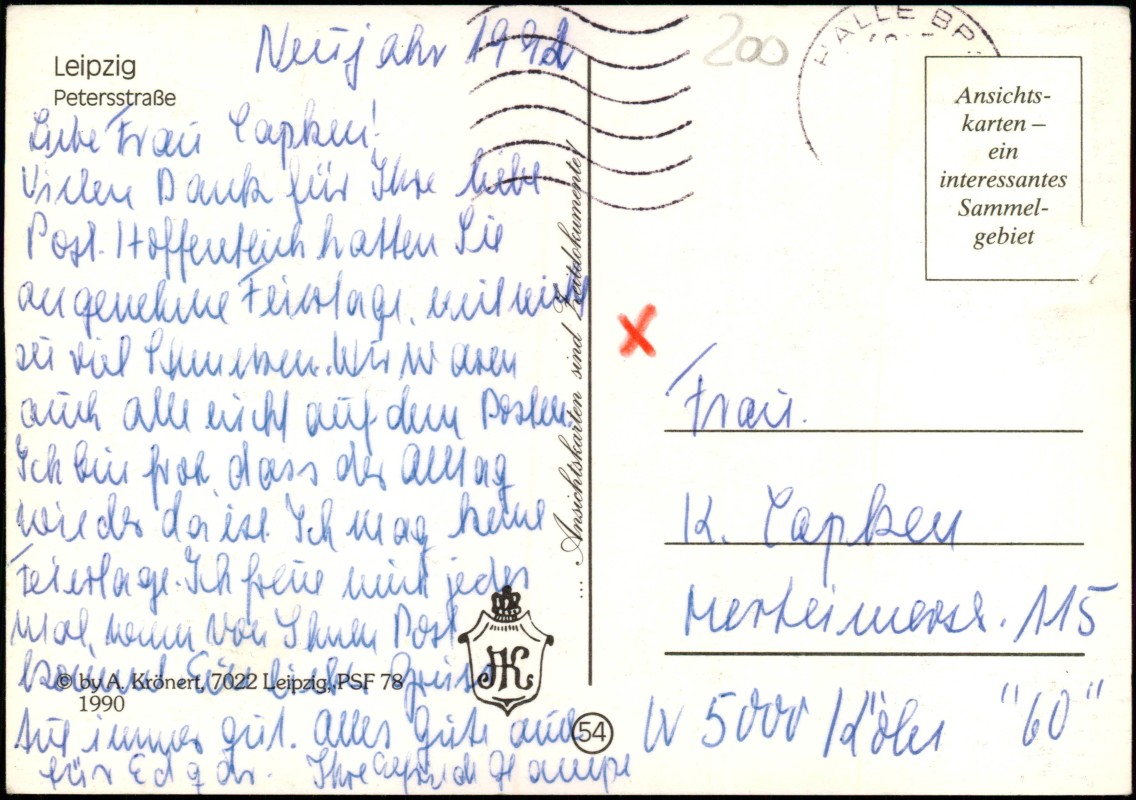 Leipzig
Petersstraße
Neujahr 1992
Liebe Frau Capken!
Vielen Dank für Ihre liebe
Post. Hoffentlich hatten Sie
angenehme Feiertage, mit nicht
zu viel Schmerzen. Wir waren
auch alle nicht auf dem Posten.
Ich bin froh dass der Alltag
wieder da ist. Ich mag keine
Feiertage. Ich freue mich jedes
mal, wenn von Ihnen Post
kommt. Ein lieber Gruß
tut immer gut. Alles Gute auch
für Edgar. Ihre Hampe
© by A. Krönert, 7022 Leipzig, PSF 78
1990
... Ansichtskarten sind Zeitdokumente!
AK
54
200
HALLE
Ansichts-
karten –
ein
interessantes
Sammel-
gebiet
X
Frau.
K. Capken
Merheimerstr. 115
W 5000 Köln "60"